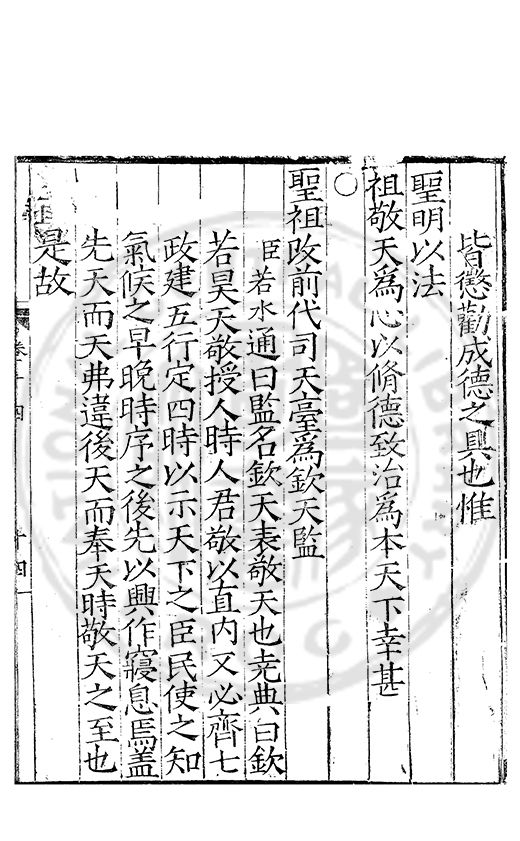 皆懲勸成德之具也惟
聖明以法
祖敬天為心以脩德致治為本天下幸甚
○
聖祖改前代司天臺為欽天監
臣若水通曰監名欽天表敬天也堯典曰欽
若昊天敬授人時人君敬以直內又必齊七
政建五行定四時以示天下之臣民使之知
氣候之早晚時序之後先以興作寢息焉蓋
先天而天弗違後天而奉天時敬天之至也
是故
祖